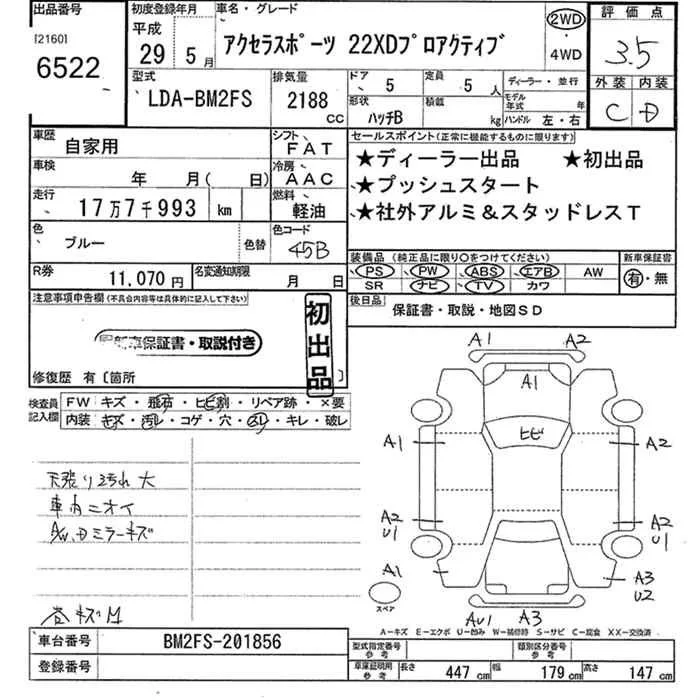 出品番号 初度登録年月 車名・グレード 2WD 評価点
[2160] 平成 ・
6522 29 5月 アクセラスポーツ 22XDプロアクティブ 4WD 3.5
型式 排気量 ドア 5 定員 5人 ディーラー・並行 外装 内装
LDA-BM2FS 2188 CC 形状 ハッチB 積載 kg モデル年式 年 ハンドル 左・右 C D
車歴 自家用 シフト FAT セールスポイント(正常に機能するものに限ります)
車検 年 月( 日) 冷房 AAC ★ディーラー出品 ★初出品
走行 17万7千993 km 燃料 軽油 ★プッシュスタート
★社外アルミ&スタッドレスT
色 ブルー 色替 色コード 45B
装備品 (純正品に限り○をつけてください) 新車保証書
R券 11,070円 名変通知期限 月 日 PS PW ABS エアB AW 有・無
SR ナビ TV カワ
注意事項申告欄(不具合内容等は具体的に記入して下さい) 後日品 保証書・取説・地図SD
新車保証書・取説付き
初出品
修復歴 有〔箇所 〕
検査員記入欄 FW キズ・飛石・ヒビ割・リペア跡・×要
内装 キズ・汚レ・コゲ・穴・ソリ・キレ・破レ
A1 A2
A1
ヒビ
A1 A2
天張り汚れ 大
車内ニオイ
ミラーキズ
A2 U1 A2 U1
A1 A3 U2
スペア
キズM
AU1 A3
A-キズ E-エクボ U-凹み W-補修時 S-サビ C-腐食 XX-交換済
車台番号 BM2FS-201856 型式指定番号 参考 類別区分番号 参考
登録番号 車庫証明用 参考 長さ 447cm 幅 179cm 高さ 147cm